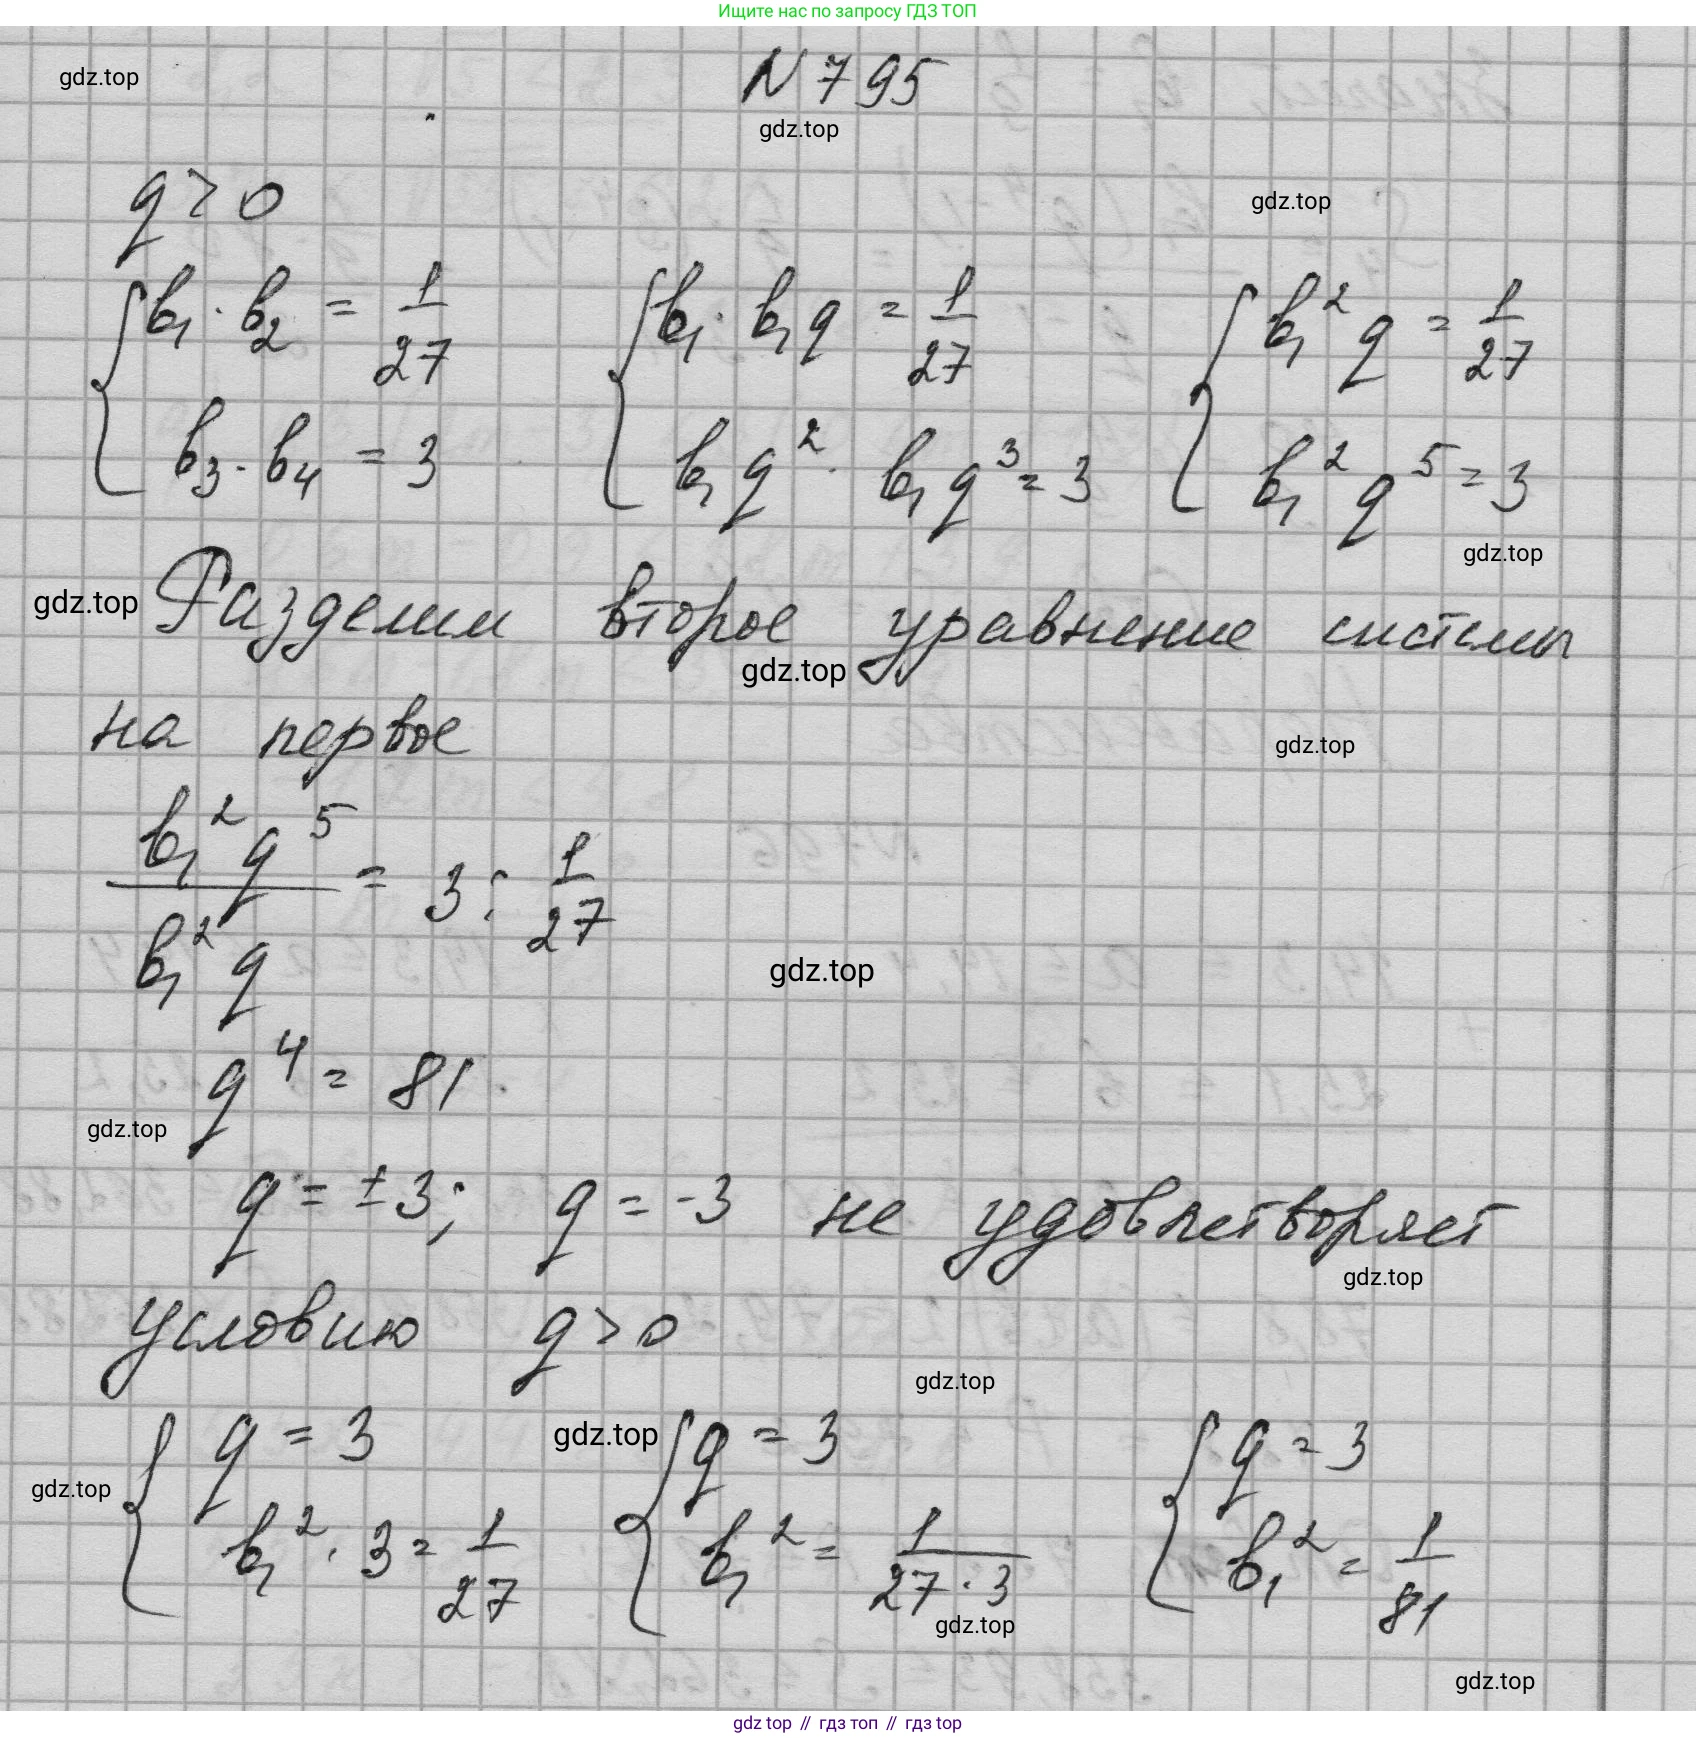 Ищите нас по запросу ГДЗ ТОП
N 795
gdz.top
gdz.top
q > 0
gdz.top
{ b₁ · b₂ = 1/27 { b₁ · b₁q = 1/27 { b₁²q = 1/27
b₃ · b₄ = 3 b₁q² · b₁q³ = 3 b₁²q⁵ = 3
gdz.top
gdz.top
Разделим второе уравнение системы
gdz.top
на первое
gdz.top
b₁²q⁵ / b₁²q = 3 : 1/27
gdz.top
q⁴ = 81
gdz.top
q = ±3; q = -3 не удовлетворяет
gdz.top
условию q > 0
gdz.top
{ q = 3 { q = 3 { q = 3
gdz.top
gdz.top
b₁² · 3 = 1/27 b₁² = 1/(27 · 3) b₁² = 1/81
gdz.top
gdz.top
gdz top // гдз топ // гдз top